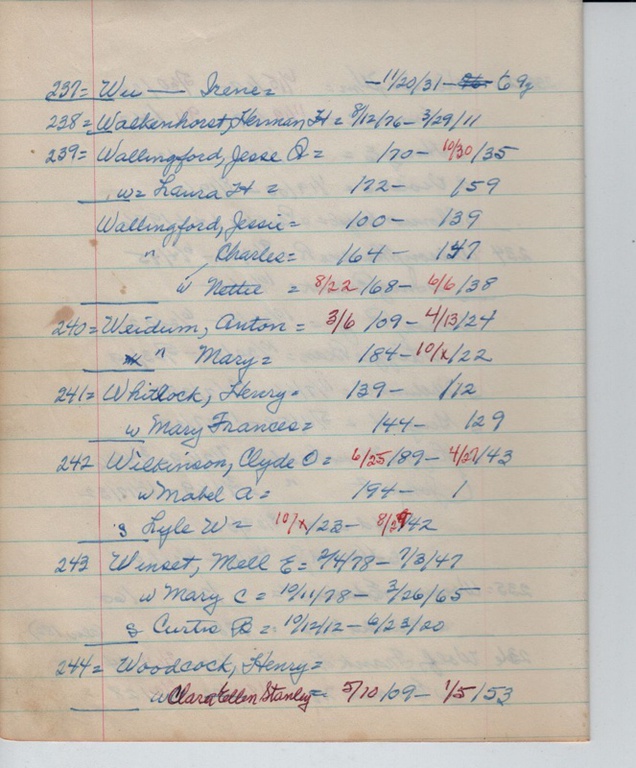 237= Wu — Irene= -11/20/31- 69y
238= Walkenhorst, Herman H = 8/12/76- 3/29/11
239= Wallingford, Jesse O= /70- 10/30/35
w= Laura H = 172- /59
Wallingford, Jessie= 100- 139
" Charles= 164- 147
w Nettie = 8/22/68- 6/6/38
240= Weidum, Anton= 3/6/09- 4/13/24
" Mary= 184- 10/x/22
241= Whitlock, Henry= 139- /12
w Mary Frances= 144- 129
242 Wilkinson, Clyde O= 6/25/89- 4/27/43
w Mabel A= 194- 1
s Lyle W= 10/x/23- 8/29/42
243 Winset, Mell E= 2/4/78- 7/3/47
w Mary C= 10/11/78- 3/26/65
s Curtis B= 10/12/12- 6/23/20
244= Woodcock, Henry=
w Clara Ellen Stanley= 5/10/09- 1/5/53